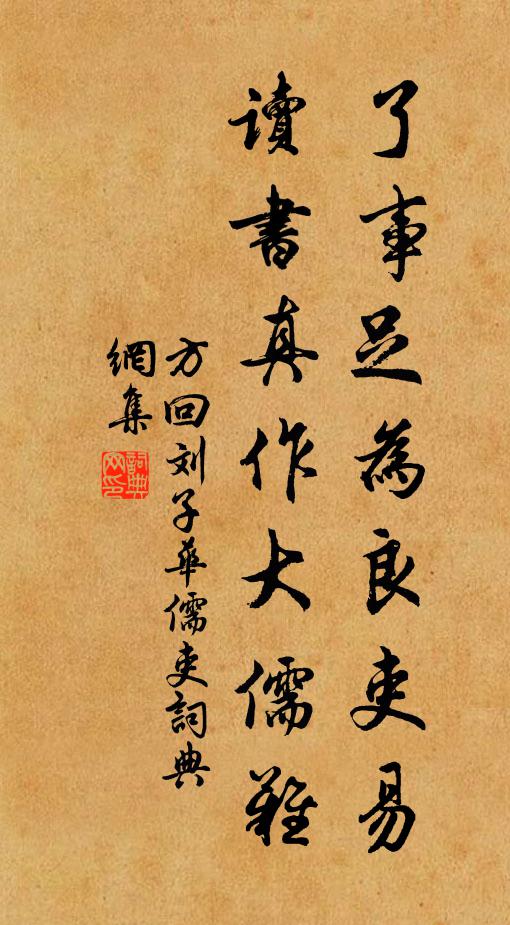 了事足為良吏易
讀書真作大儒難
方回刘子華儒吏詞典
網集
詞典
网印